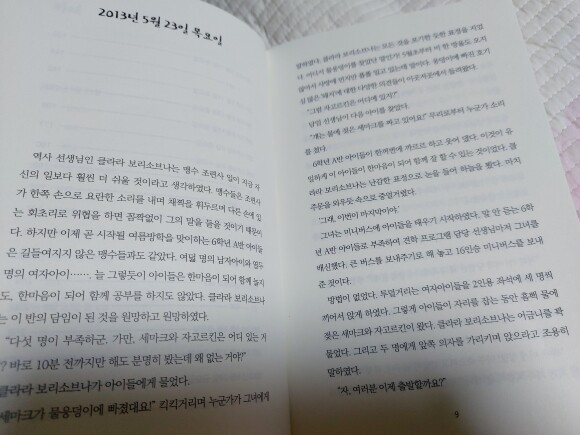 2013년 5월 23일 목요일
역사 선생님인 클라라 보리소브나는 맹수 조련사 일이 지금 자
신의 일보다 훨씬 더 쉬울 것이라고 생각하였다. 맹수들은 조련사
가 한쪽 손으로 요란한 소리를 내며 채찍을 휘두르며 다른 손에 있
는 회초리로 위협을 하면 꼼짝없이 그의 말을 들을 것이기 때문이
다. 하지만 이제 곧 시작될 여름방학을 맞이하는 6학년 A반 아이들
은 길들여지지 않은 맹수들과도 같았다. 여덟 명의 남자아이와 열두
명의 여자아이…… 늘 그렇듯이 아이들은 한마음이 되어 함께 놀지
도, 한마음이 되어 함께 공부를 하지도 않았다. 클라라 보리소브나
는 이 반의 담임이 된 것을 원망하고 원망하였다.
"다섯 명이 부족하군. 가만, 세마크와 자고르킨은 어디 있는 거
? 바로 10분 전까지만 해도 분명히 봤는데 왜 없는 거야?"
클라라 보리소브나가 아이들에게 물었다.
세마크가 물웅덩이에 빠졌대요!" 킥킥거리며 누군가가 그녀에게
말하였다. 클라라 보리소브나는 모든 것을 포기한 듯한 표정을 지었
다. 어디서 물웅덩이를 찾았단 말인가! 5월초부터 비 한 방울도 오지
않아서 사방에 먼지만 풀풀 일고 있는데 말이다. 웅덩이에 빠진 호기
심 많은 돼지에 대한 다양한 의견들이 이곳저곳에서 들려왔다.
"그럼 자고르킨은 어디에 있지?"
담임 선생님이 다음 아이를 찾았다.
"걔는 물에 젖은 세마크를 짜고 있어요!" 무리로부터 누군가 소리
를 쳤다.
6학년 A반 아이들이 한꺼번에 까르르 하고 웃어 댔다. 이것이 유
일하게 이 아이들이 한마음이 되어 함께 잘 할 수 있는 것이었다. 클
라라 보리소브나는 난감한 표정으로 눈을 들어 하늘을 봤다. 마치
주문을 외우듯 속으로 중얼거렸다.
'그래, 이번이 마지막이야.'
그녀는 미니버스에 아이들을 태우기 시작하였다. 말 안 듣는 6학
년 A반 아이들로 부족하여 견학 프로그램 담당 선생님마저 그녀를
배신했다. 큰 버스를 보내주기로 해 놓고 16인승 미니버스를 보내
준 것이다.
방법이 없었다. 투덜거리는 여자아이들을 2인용 좌석에 세 명씩
끼어서 앉게 하였다. 그렇게 아이들이 자리를 잡는 동안 흠뻑 물에
젖은 세마크와 자고르킨이 왔다. 클라라 보리소브나는 이금니를 꽉
물었다. 그리고 두 명에게 앞쪽 의자를 가리키며 앉으라고 조용히
말하였다.
"자, 여러분 이제 출발할까요?"
9